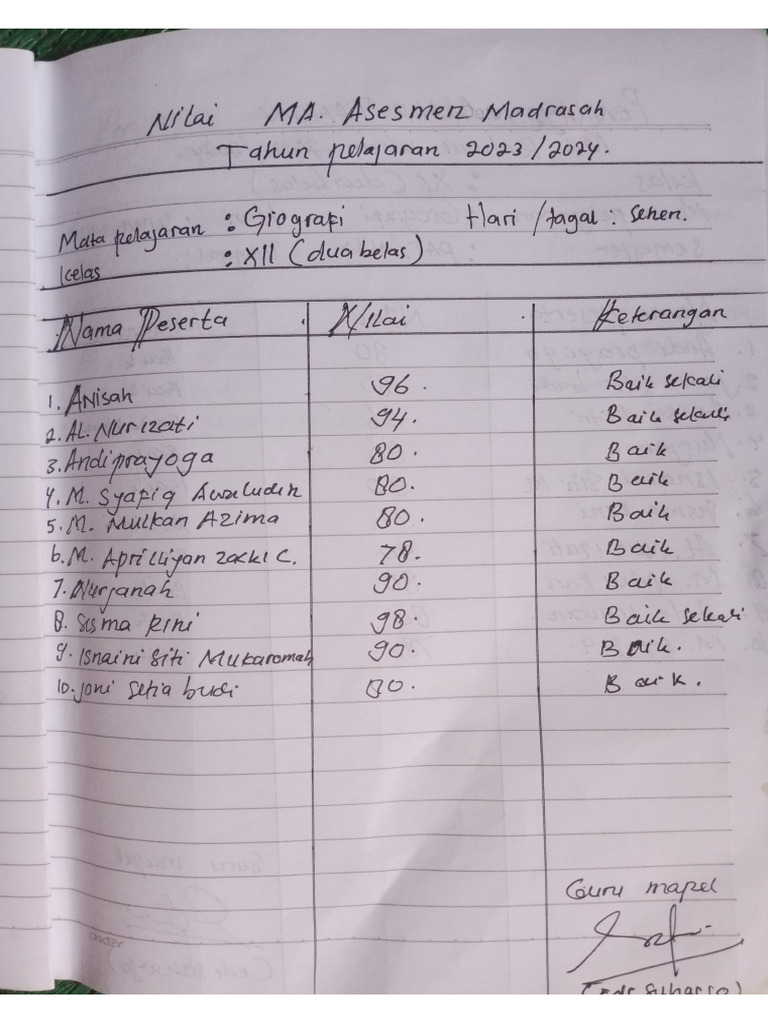 Nilai MA. Asesmen Madrasah
Tahun pelajaran 2023/2024.
Mata pelajaran : Giografi Hari/tagal : Senen.
Kelas : XII (dua belas)
Nama Peserta Nilai Keterangan
1. Anisah 96. Baik sekali
2. AL. Nurizati 94. Baik sekali
3. Andi prayoga 80. Baik
4. M. Syafiq Awaludin 80. Baik
5. M. Mulkan Azima 80. Baik
6. M. Aprilliyan zacki C. 78. Baik
7. Nurjanah 90. Baik
8. Sisma Rini 98. Baik sekali
9. Isnaini Siti Mukaromah 90. Baik.
10. Joni Setia budi 80. Baik.
Guru mapel